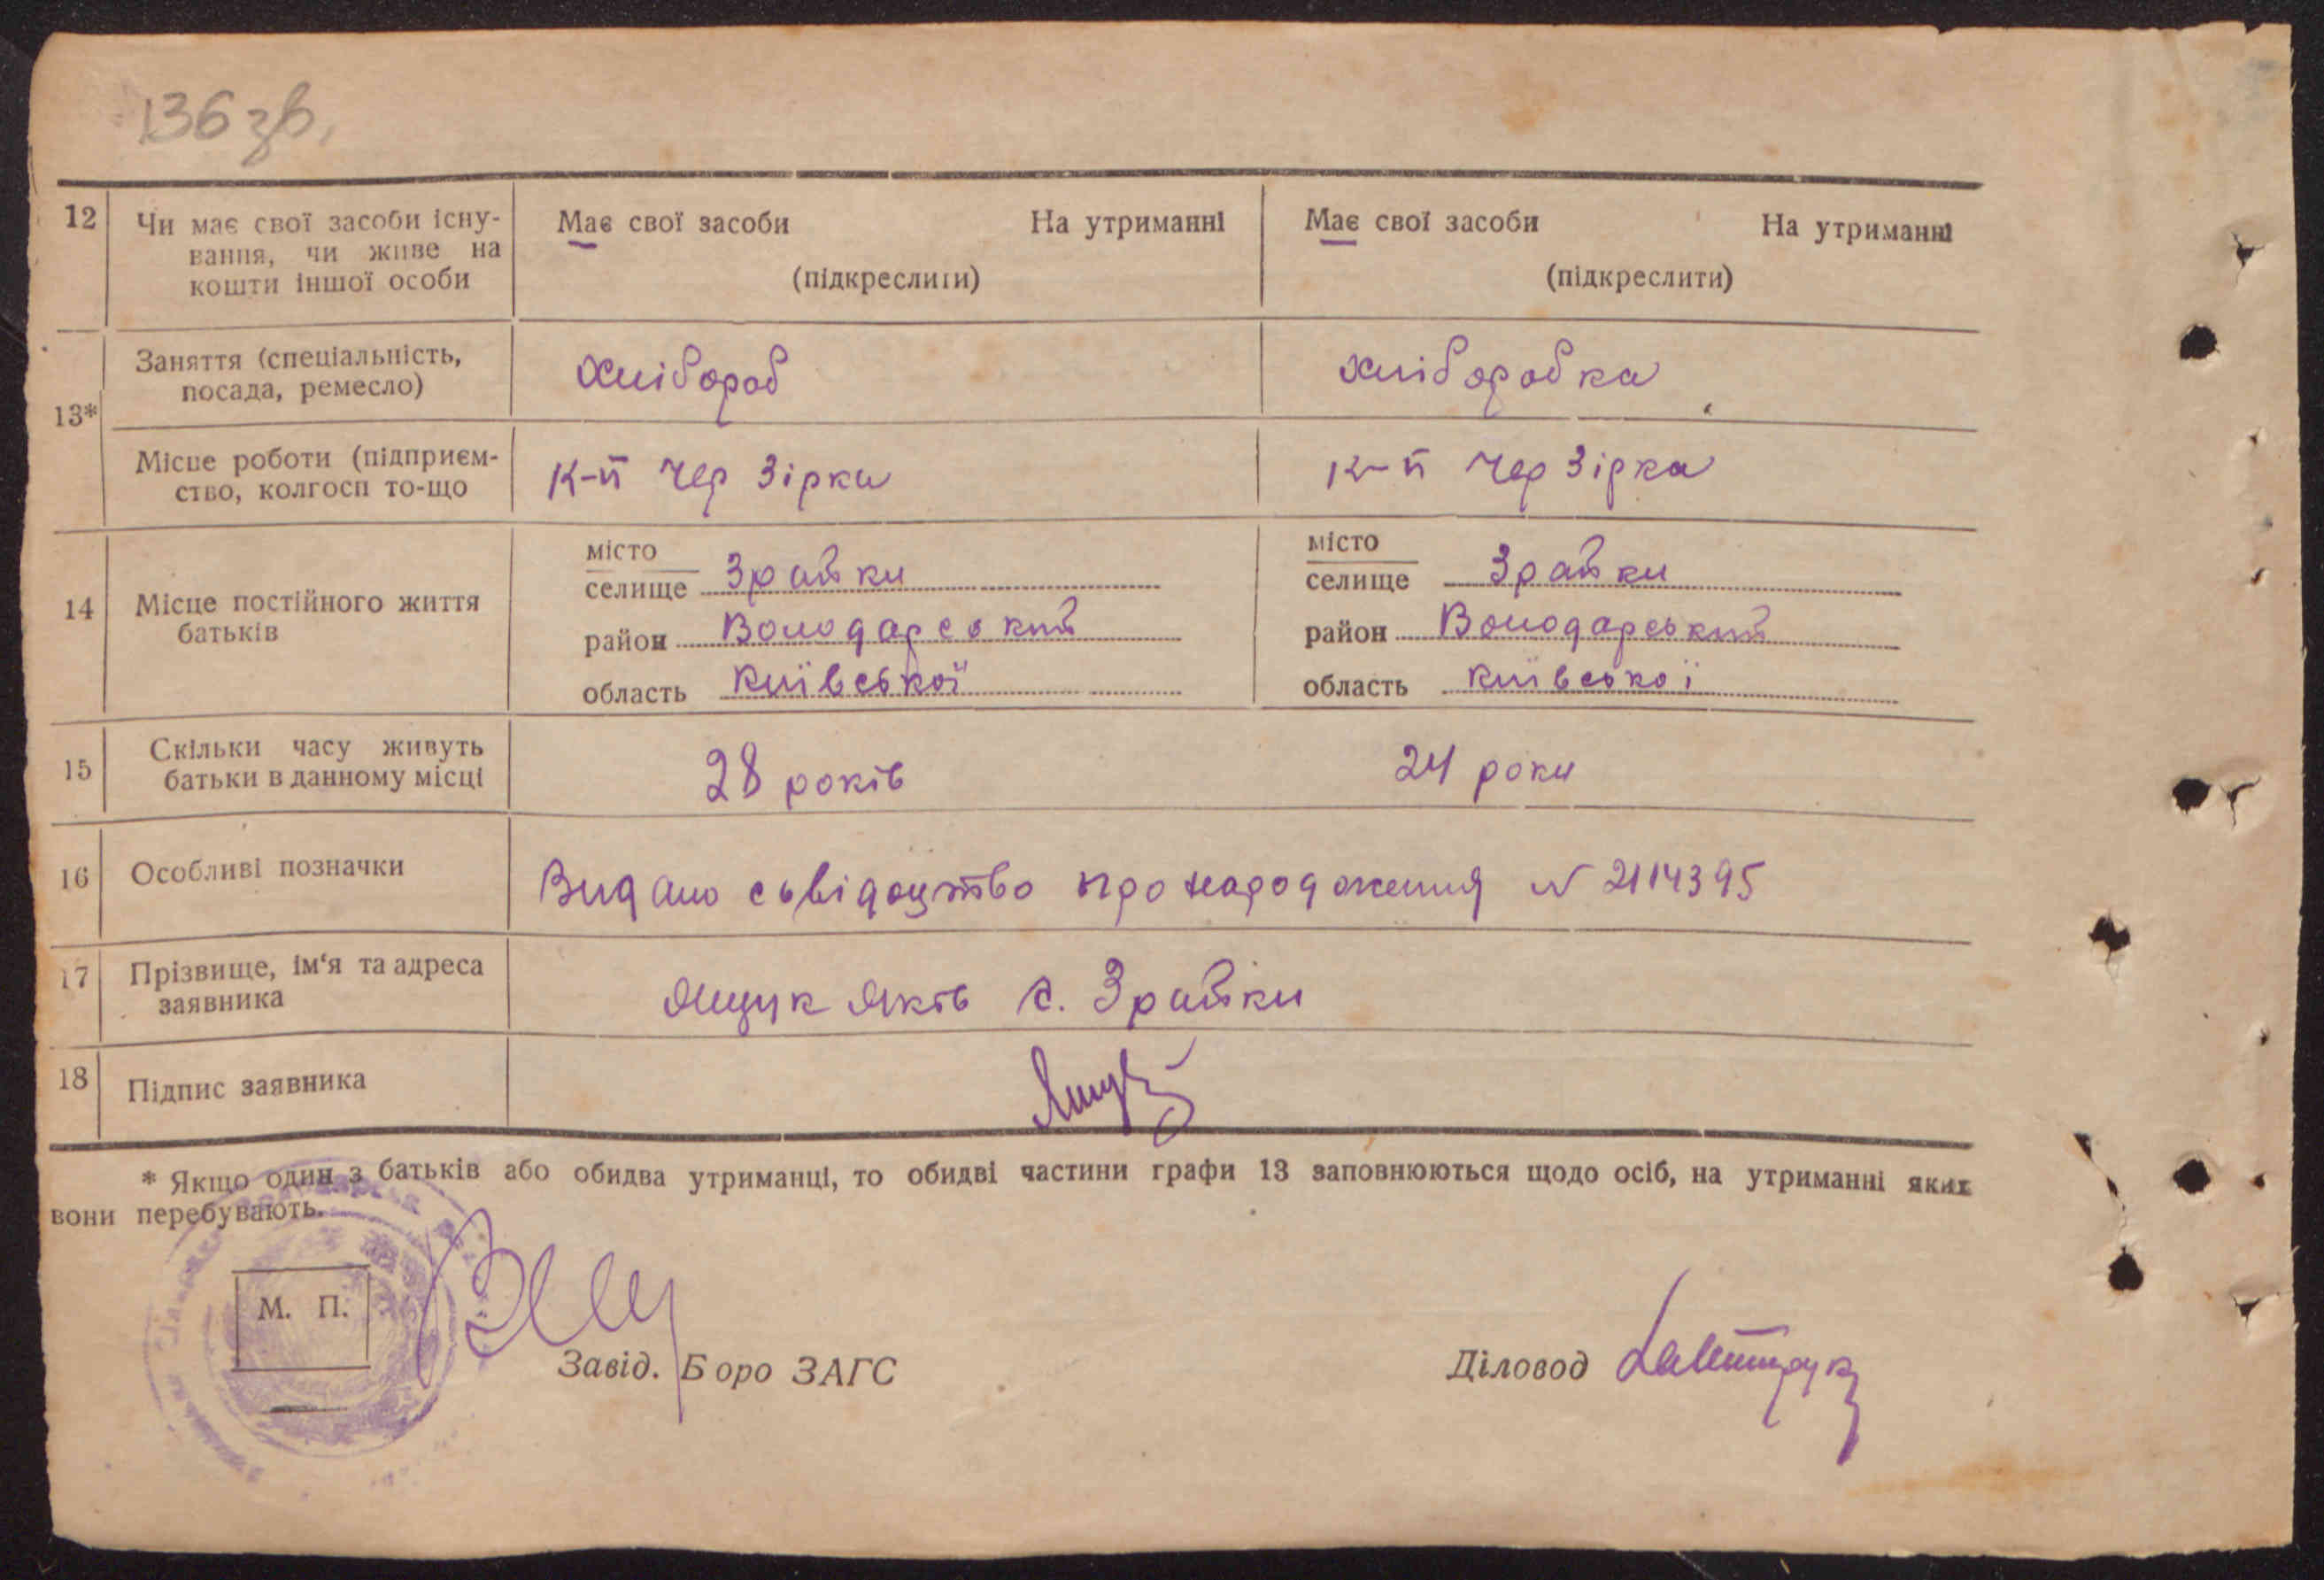 136 зв.
12 Чи має свої засоби існу- Має свої засоби На утриманні Має свої засоби На утриманні
вання, чи живе на
кошти іншої особи (підкреслити) (підкреслити)
Заняття (спеціальність, хлібороб хліборобка
посада, ремесло)
13*
Місце роботи (підприєм- К-п Чер Зірка К-п Чер Зірка
ство, колгосп то-що
місто місто
селище Зрайки селище Зрайки
14 Місце постійного життя
батьків район Володарський район Володарський
область Київської область Київської
15 Скільки часу живуть 28 років 24 роки
батьки в данному місці
16 Особливі позначки Видано сьвідоцтво про народження N 2114395
17 Прізвище, ім'я та адреса Ящук Яків с. Зрайки
заявника
18 Підпис заявника Ящук
* Якщо один з батьків або обидва утриманці, то обидві частини графи 13 заповнюються щодо осіб, на утриманні яких
вони перебувають.
М. П.
Завід. Боро ЗАГС Діловод